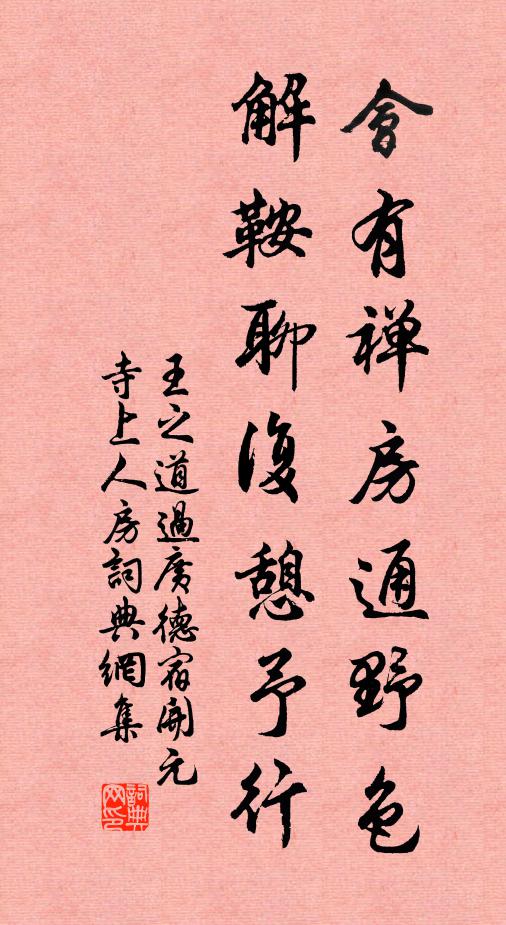 會有禅房通野色
解鞍聊復憩予行
王之道過廣德宿開元
寺上人房詞典網集
詞典
网印